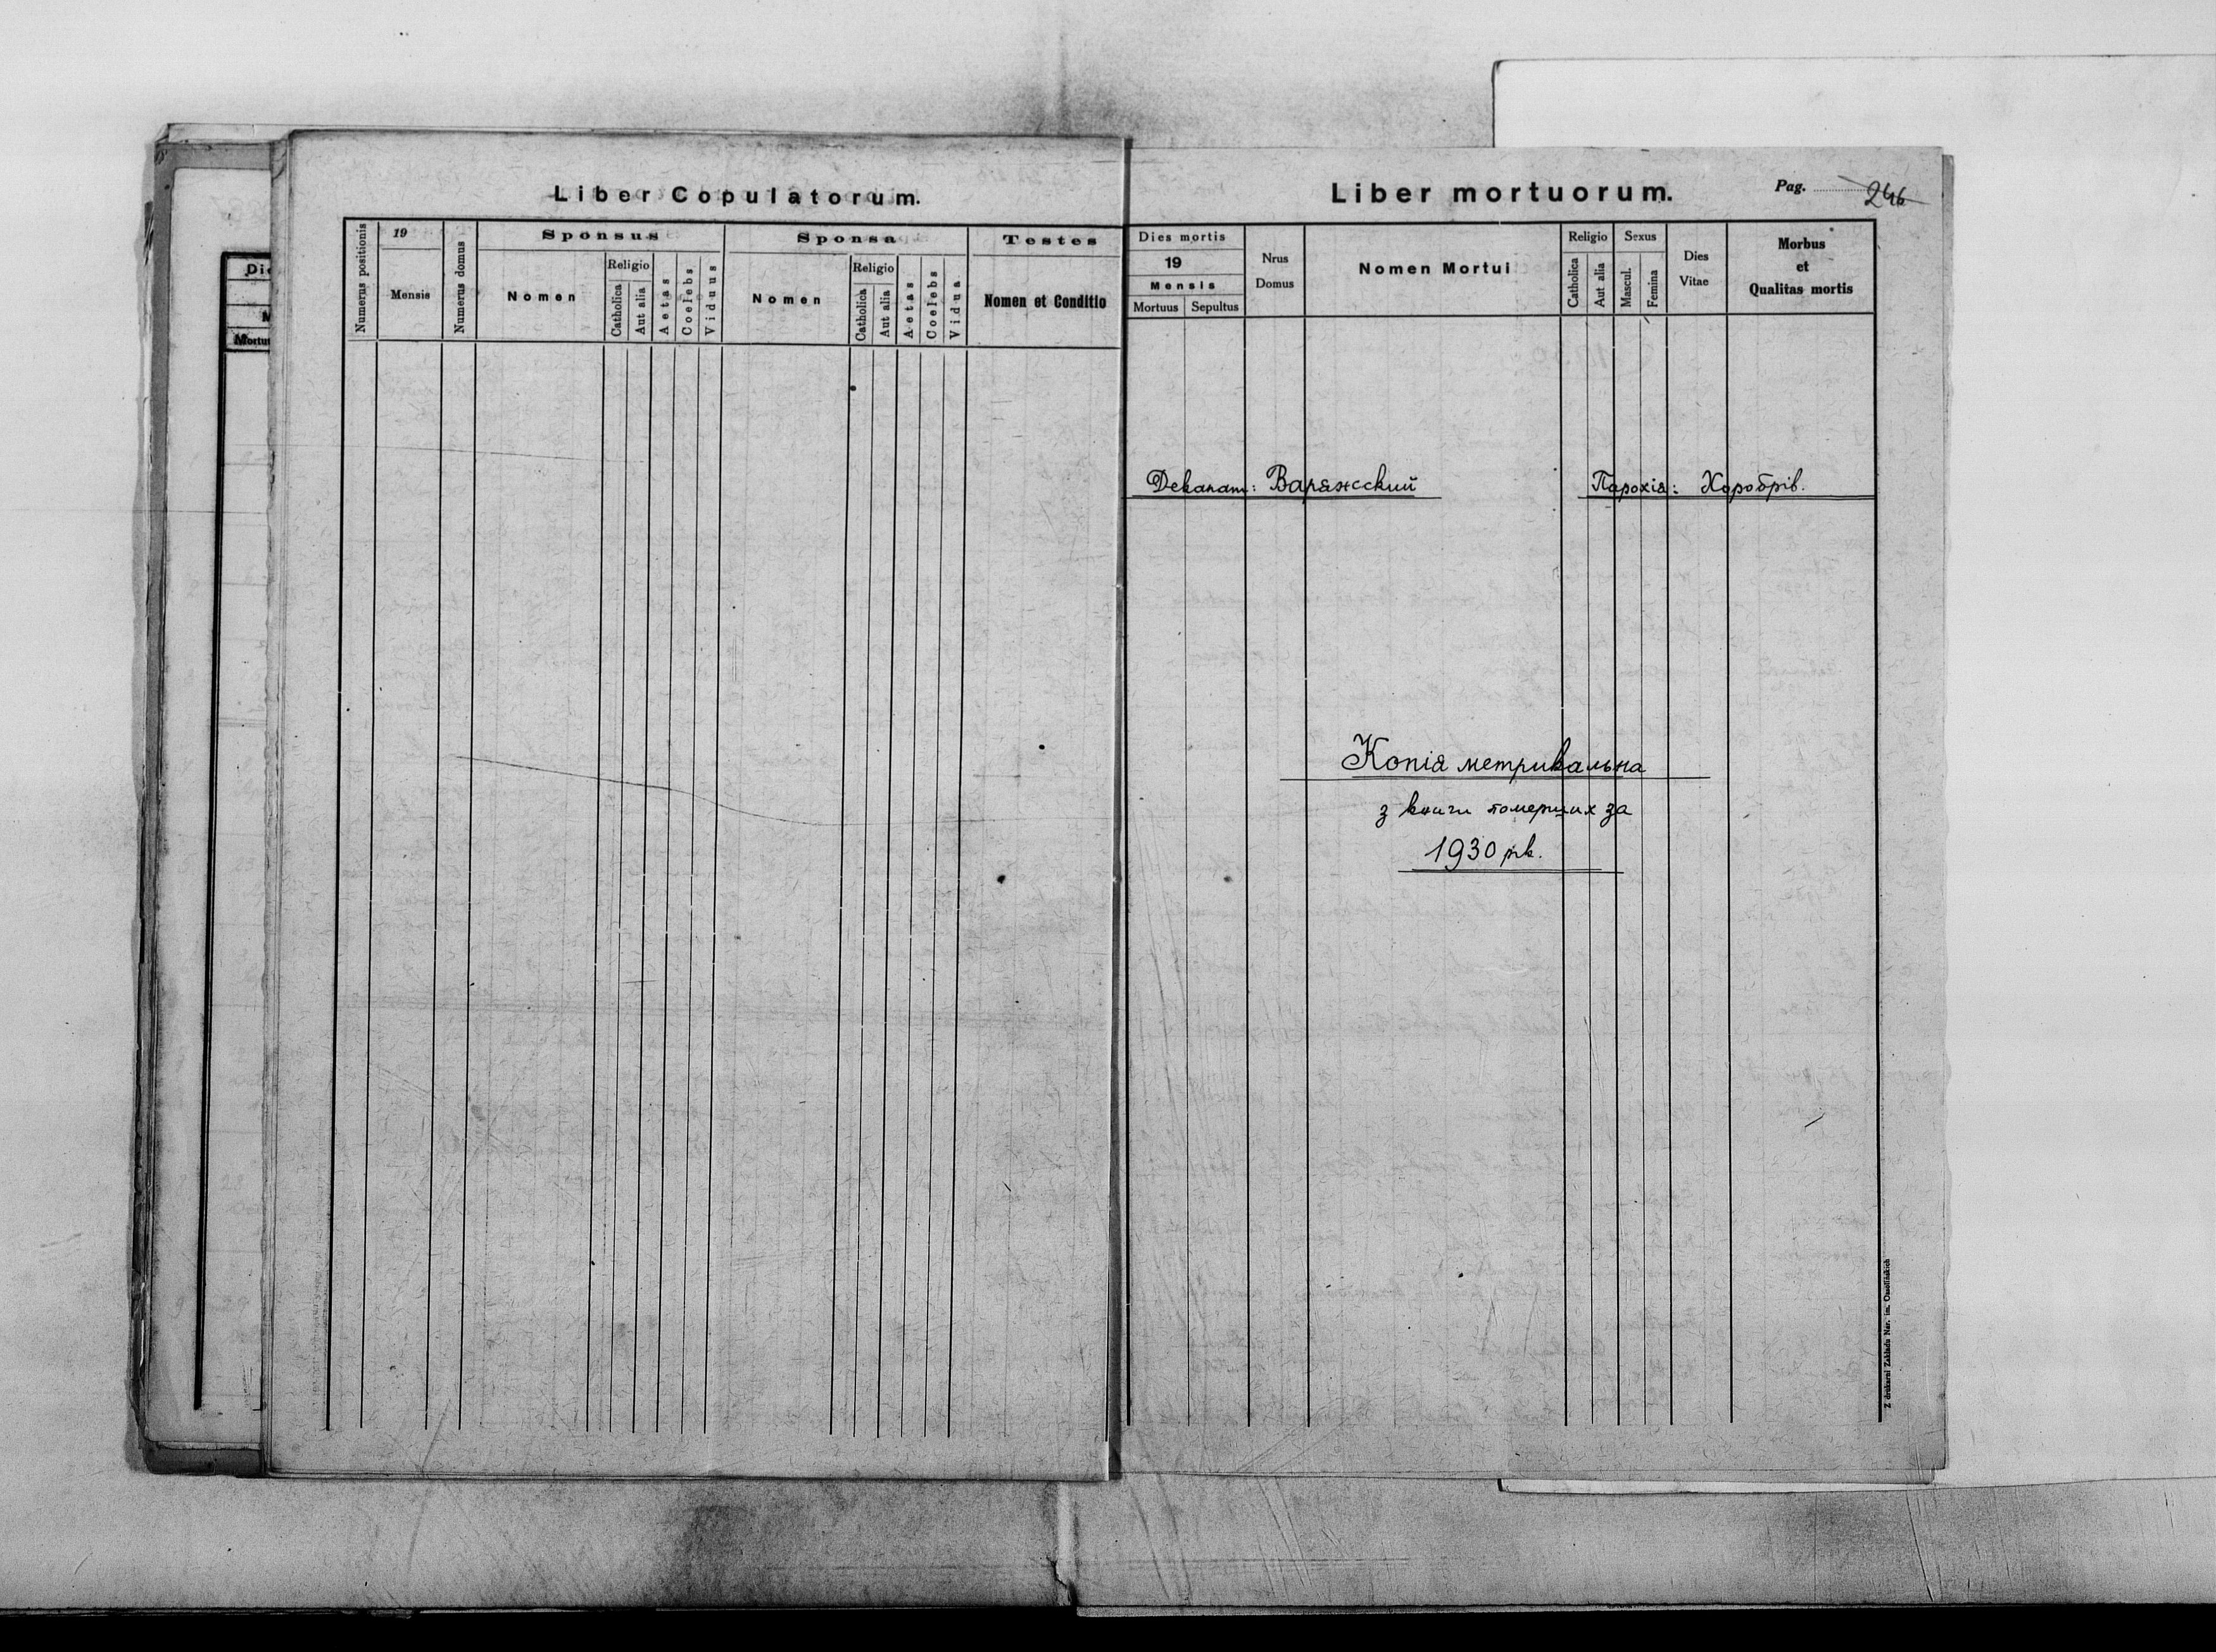 Liber Copulatorum.
Numerus positionis
19
Mensis
Numerus domus
Sponsus
Nomen
Religio
Catholica
Aut alia
Aetas
Coelebs
Viduus
Sponsa
Nomen
Religio
Catholica
Aut alia
Aetas
Coelebs
Vidua
Testes
Nomen et Conditio
Liber mortuorum.
Pag. 246
Dies mortis
19
Mensis
Mortuus
Sepultus
Nrus
Domus
Nomen Mortui
Religio
Catholica
Aut alia
Sexus
Mascul.
Femina
Dies
Vitae
Morbus
et
Qualitas mortis
Деканат: Варяжский
Парохія: Хоробрів.
Копія метрикальна
з книги померших за
1930 рік.
Z drukarni Zakładu Nar. im. Ossolińskich